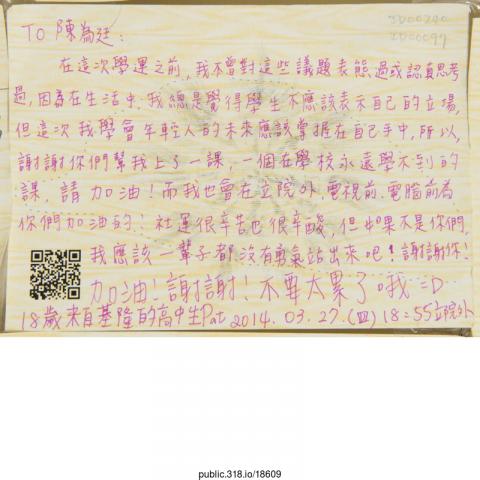 TO 陳為廷：
ID00290
ID00097
在這次學運之前，我不曾對這些議題表態過或認真思考
過，因為在生活中，我總是覺得學生不應該表示自己的立場，
但這次我學會年輕人的未來應該掌握在自己手中，所以，
謝謝你們幫我上了一課，一個在學校永遠學不到的
課，請加油！而我也會在立院外、電視前、電腦前為
你們加油的！社運很辛苦也很辛酸，但如果不是你們，
我應該一輩子都沒有勇氣站出來吧！謝謝你！
加油！謝謝！不要太累了哦 =D
18歲來自基隆的高中生Pat 2014. 03. 27. (四) 18:55立院外
public.318.io/18609